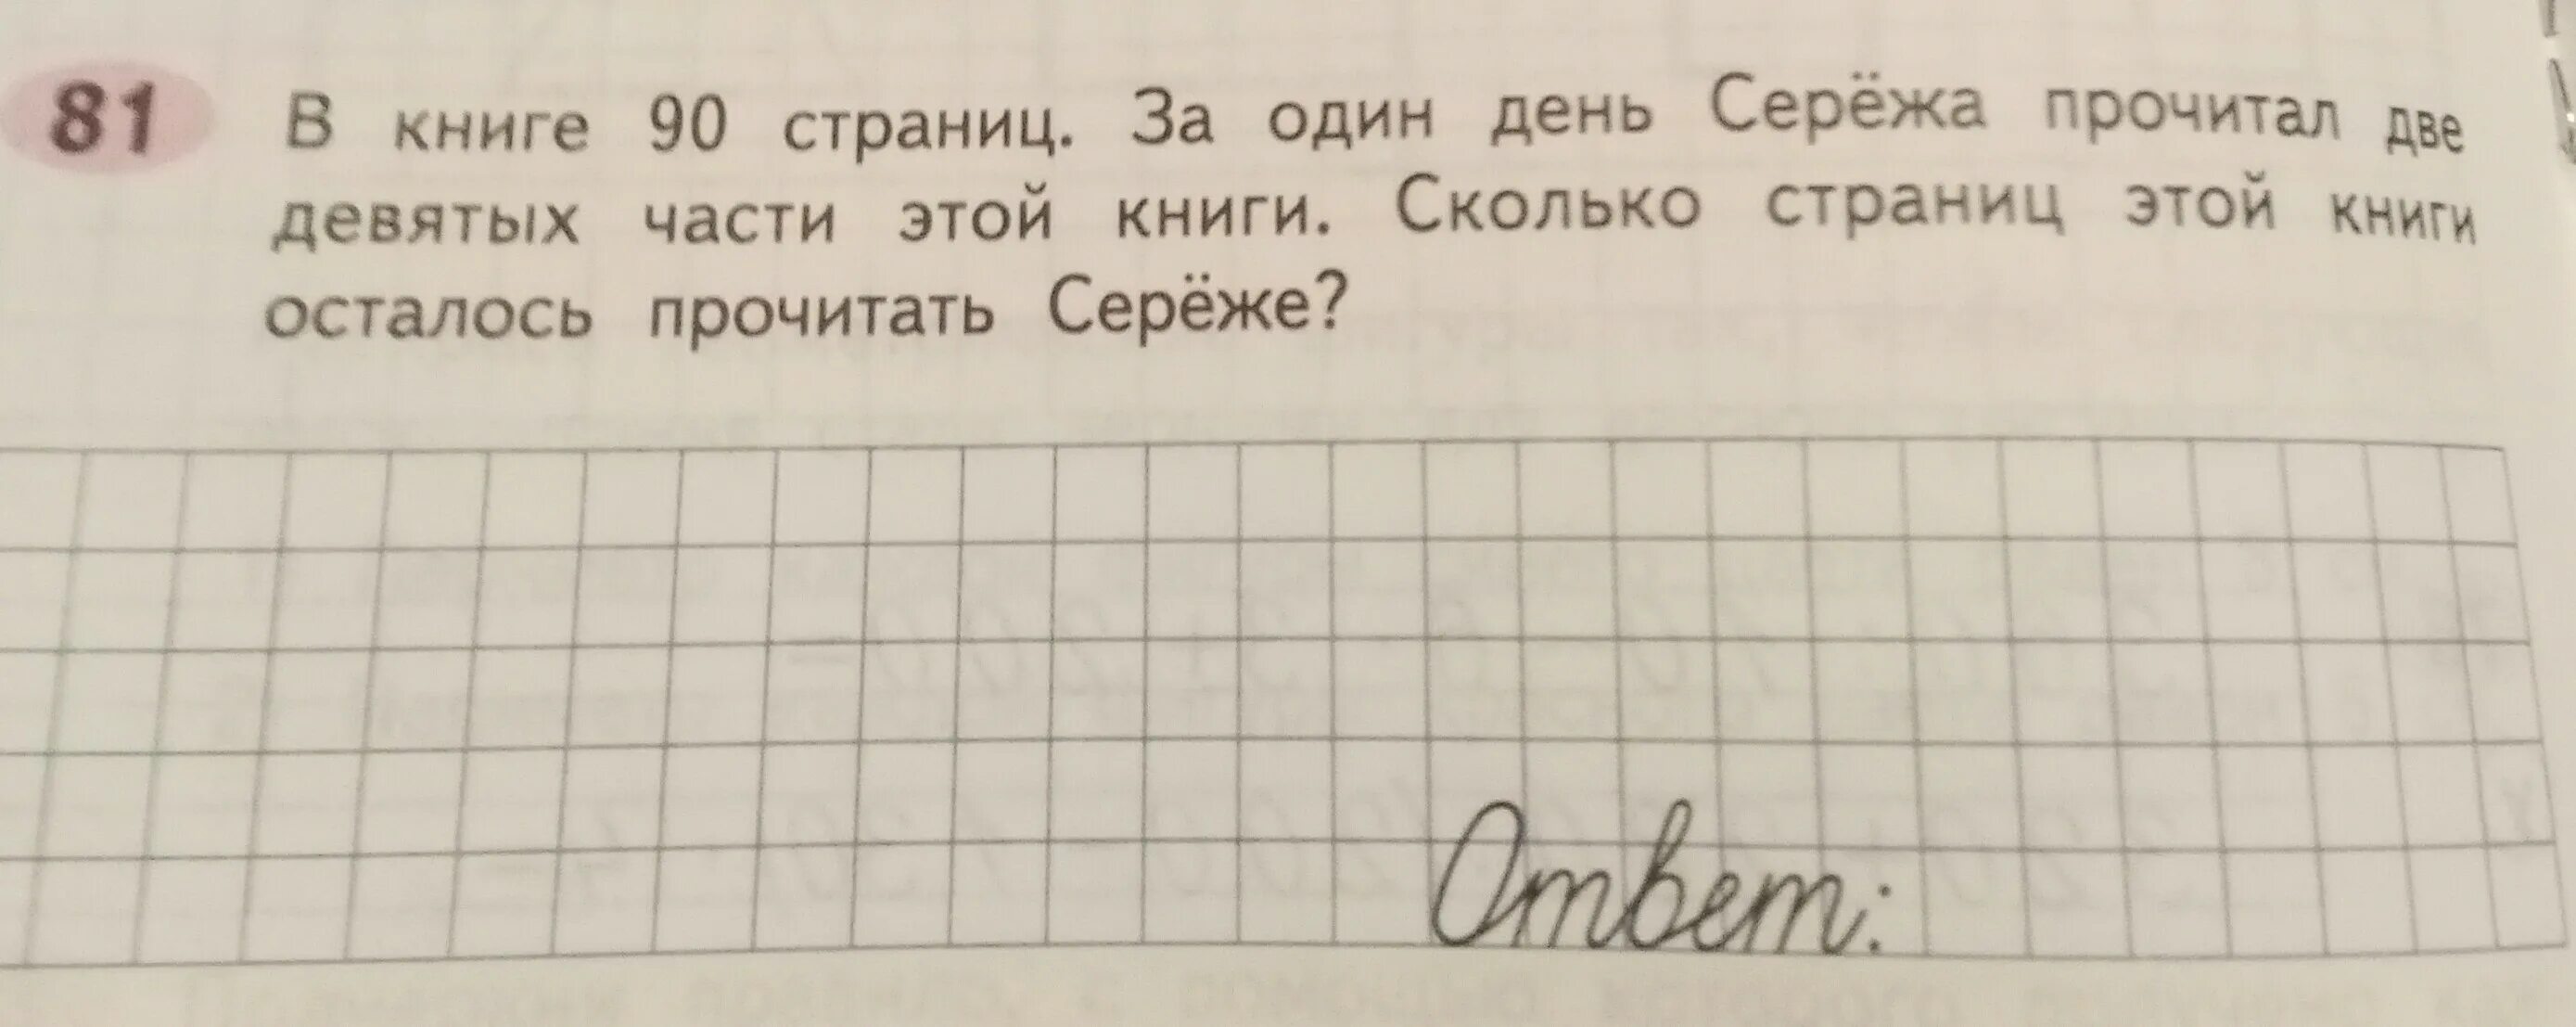 81 В книге 90 страниц. За один день Серёжа прочитал две
девятых части этой книги. Сколько страниц этой книги
осталось прочитать Серёже?
Ответ: